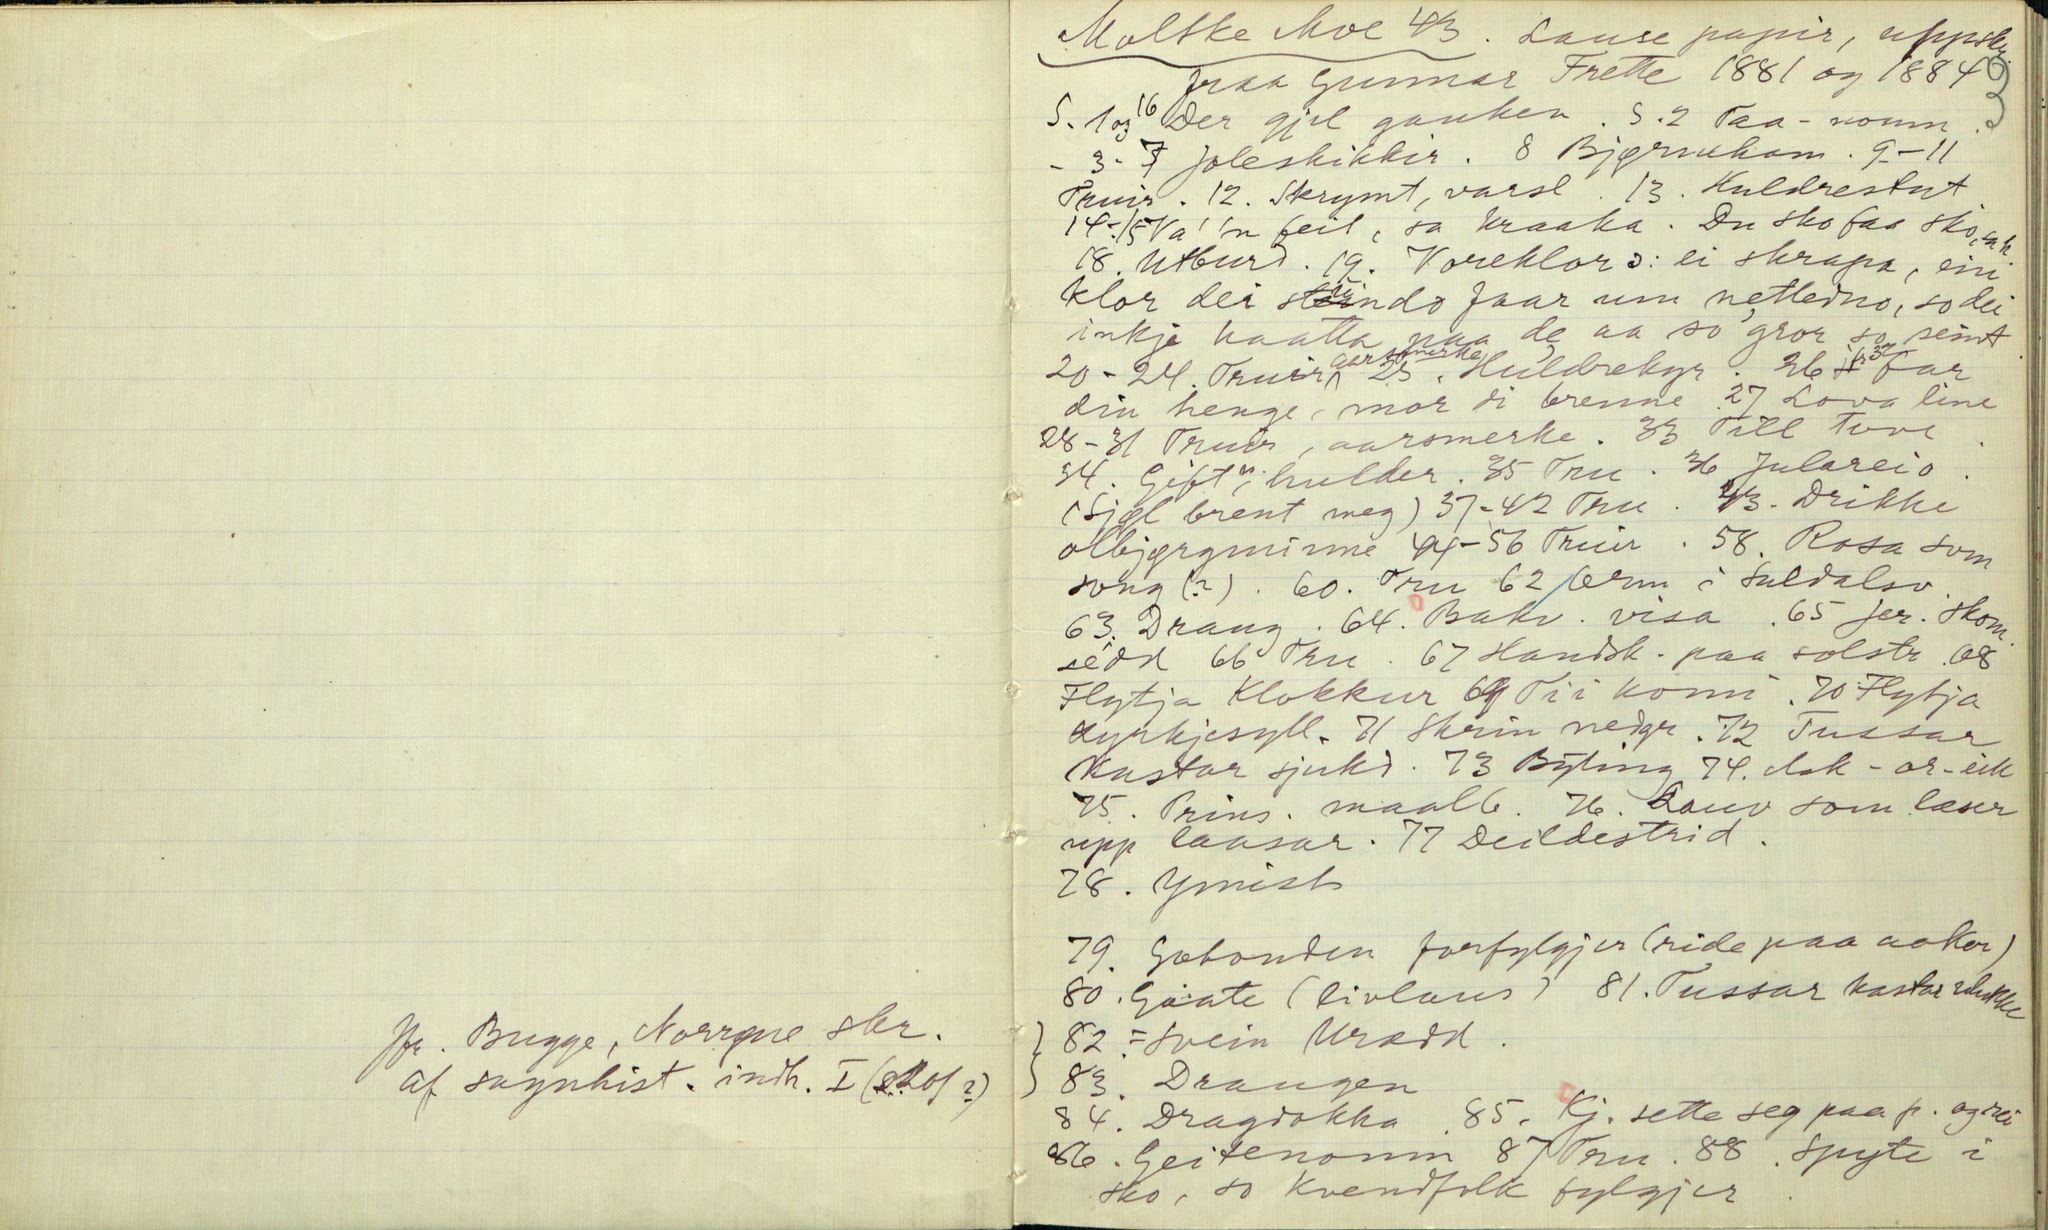 Jfr. Bugge, Norrøne skr.
af sagnhist. indh. I (201 ?)
Moltke Moe 43. Lause papir, uppskr.
fraa Gunnar Frette 1881 og 1884
S. 1 og 16 Der gjel gauken. S. 2 Taa-noum.
- 3-7 Joleskikkir. 8 Bjørneham. 9-11
Truir. 12. Skrymt, varsl. 13. Huldrestut
14-15 Va' 'n feil, sa kraaka. Du sko faa sko, sa h.
18. Utburd. 19. Voreklor ɔ: ei skrapa, eini
klor dei faar um netledno, so dei
inkje kaatta paa de aa so gror so seint
20-24. Truir, aarsmerke 25. Huldrekyr. 26 jfr 32 Far
din henge, mor di brenne 27 Lova line
28-31 Truir, aarsmerke. 33 Till tove.
34. Gift m. hulder. 35 Tru. 36 Julareio.
(Sjøl brent meg) 37-42 Tru. 43. Drikke
olbjørgminne 44-56 Truir. 58. Rosa som
song (?). 60. Tru 62 Orm i Suldalsv.
63. Draug. 64. Bakv. visa. 65 Jer. Skom.
sedd 66 Tru. 67 Handsk. paa solstr. 68
Flytja Klokkur 69 Ti i komi. 70 Flytja
kyrkjesyll. 71 Skrin nedgr. 72 Tussar
kastar sjukd. 73 Byting 74. Ask-or-eik
75. Prins. maalb. 76. Lauv som læser
upp laasar. 77 Deildestrid.
78. Ymist
79. Gobonden forfylgjer (ride paa aaker)
80. Gaate (livlaus) 81. Tussar kastar
82 = Svein Urædd.
83. Draugen
84. Dragdokka. 85. Kj. sette seg paa p. og rei
86. Geitenoum 87 Tru. 88. Spyte i
sko, so kvendfolk fylgjer.